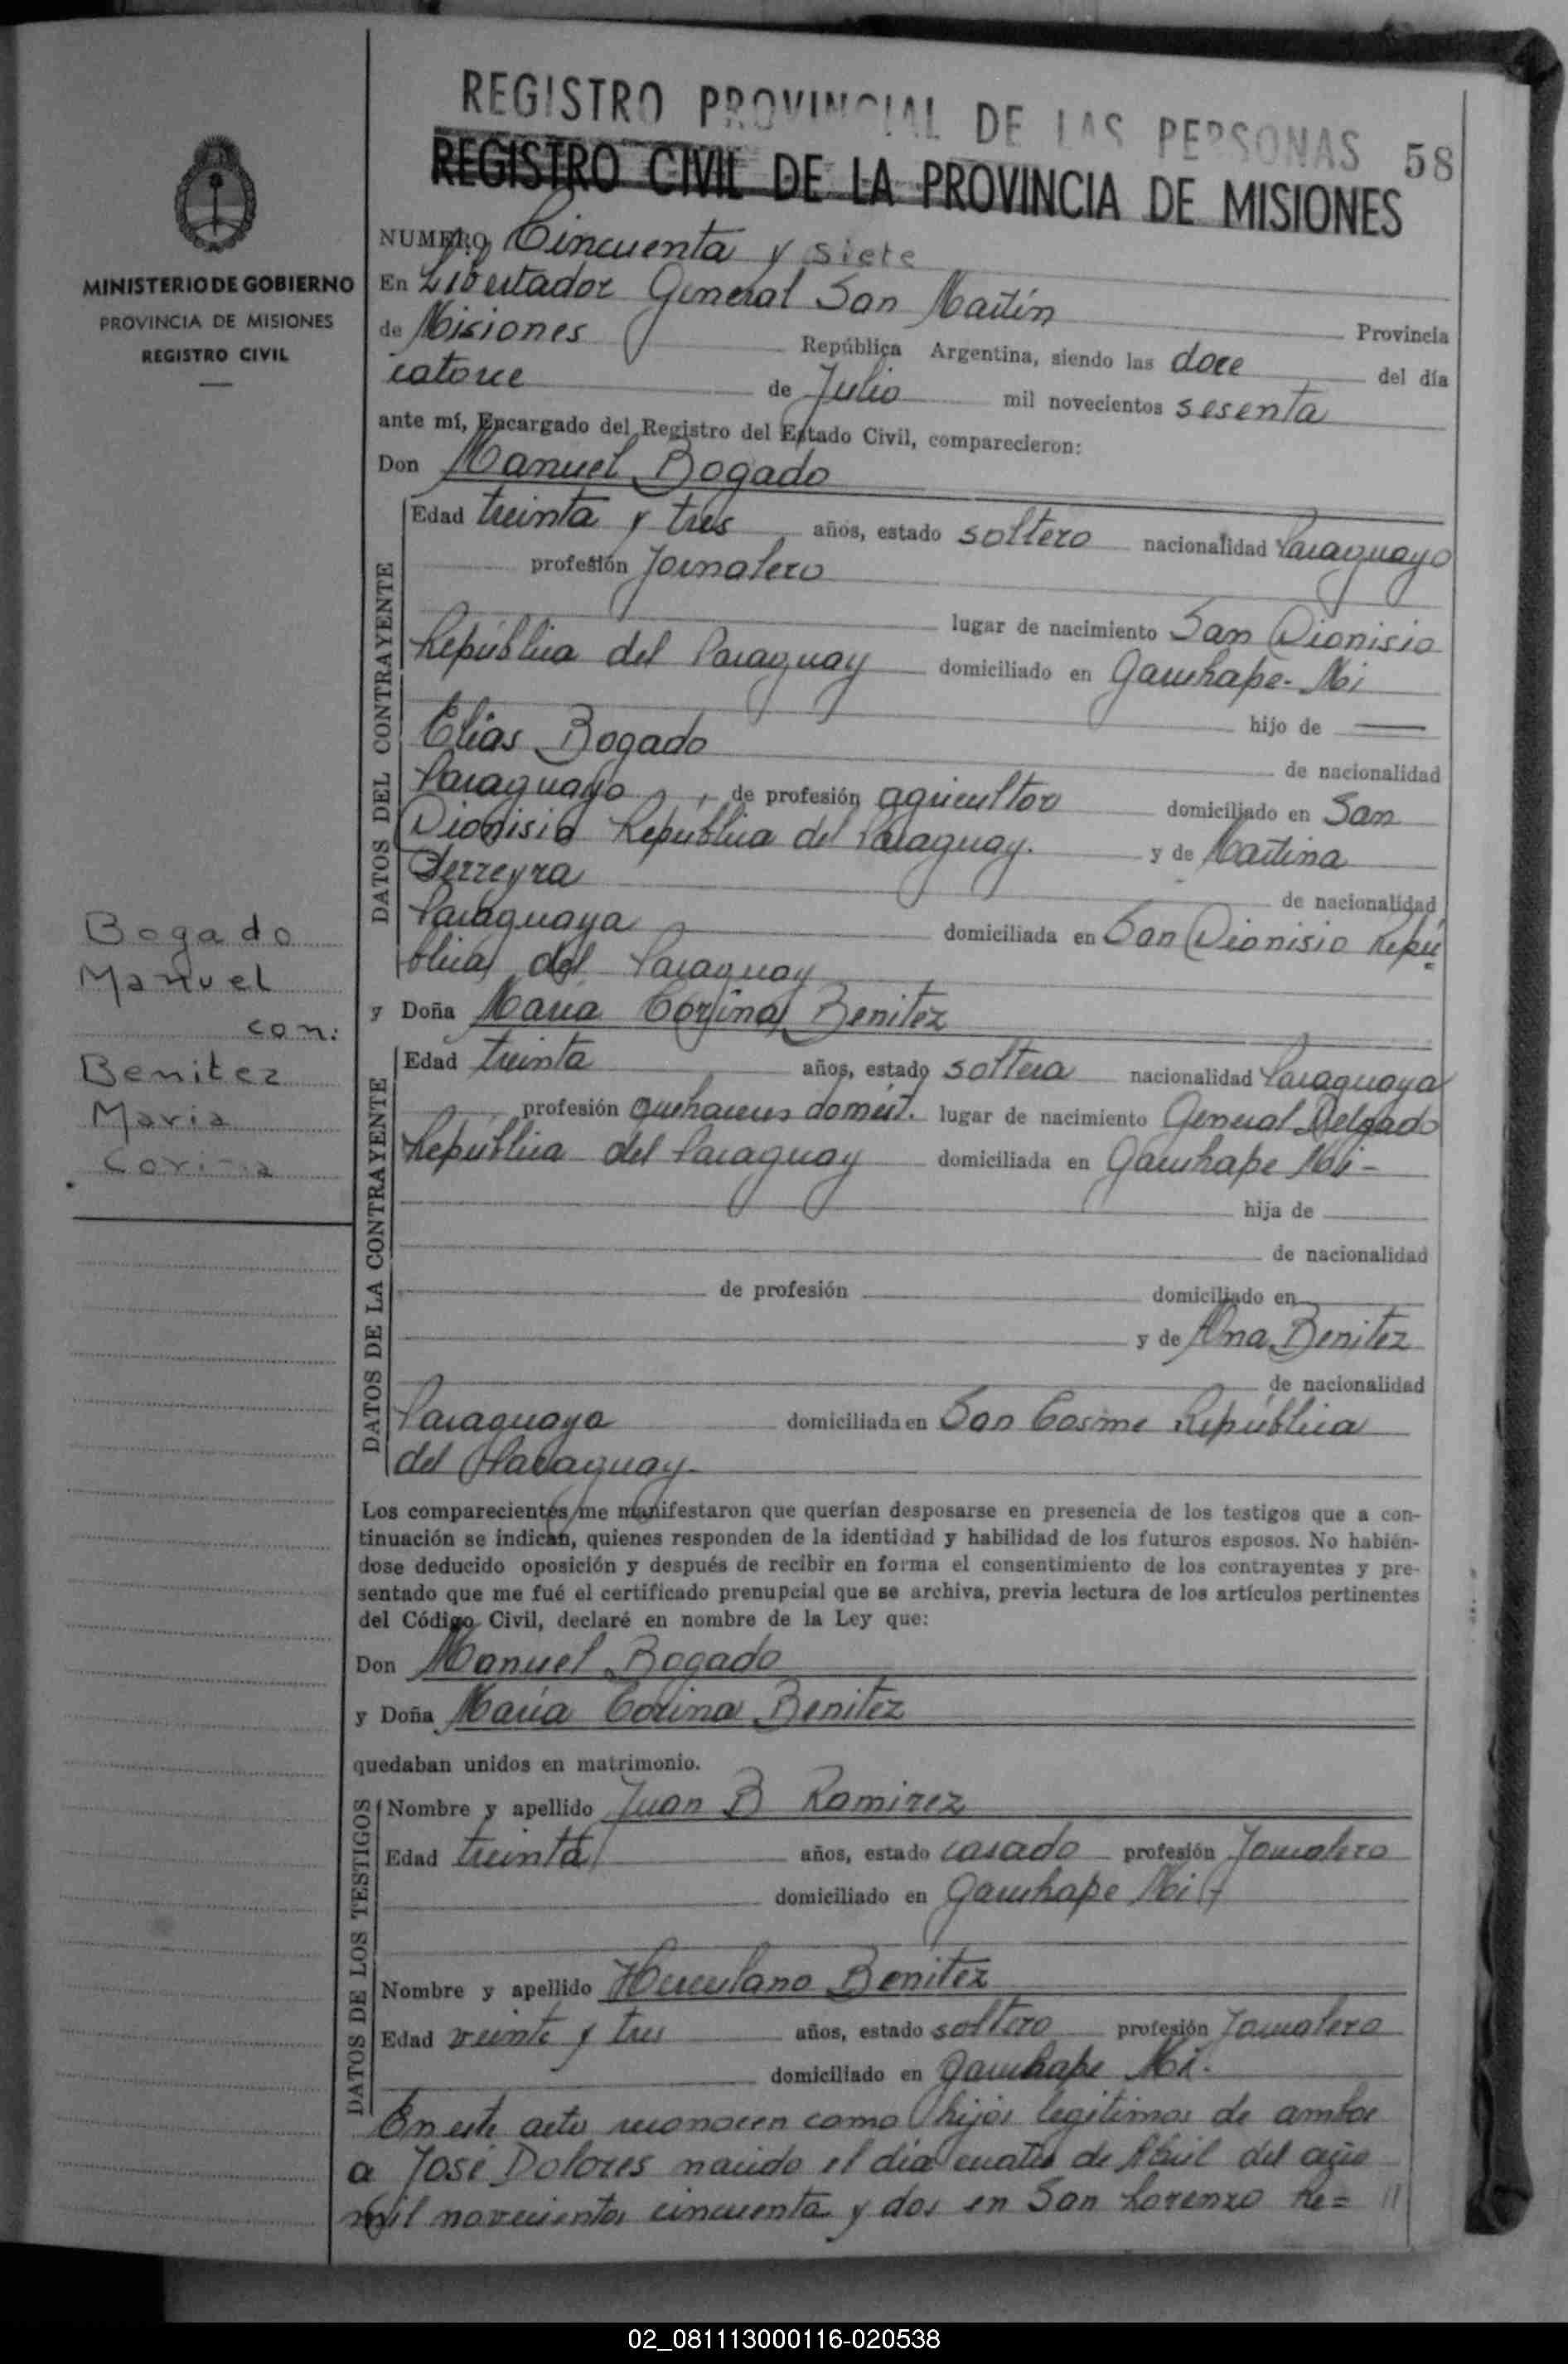 REGISTRO PROVINCIAL DE LAS PERSONAS
58
REGISTRO CIVIL DE LA PROVINCIA DE MISIONES
MINISTERIO DE GOBIERNO
PROVINCIA DE MISIONES
REGISTRO CIVIL
Bogado
Manuel
con:
Benitez
Maria
Corina
NUMERO Cincuenta y siete
En Libertador General San Martín Provincia
de Misiones República Argentina, siendo las doce del día
catorce de Julio mil novecientos sesenta
ante mí, Encargado del Registro del Estado Civil, comparecieron:
Don Manuel Bogado
DATOS DEL CONTRAYENTE
Edad treinta y tres años, estado soltero nacionalidad Paraguayo
profesión Jornalero
lugar de nacimiento San Dionisio
República del Paraguay domiciliado en Garuhape - Mi
hijo de
Elias Bogado de nacionalidad
Paraguayo, de profesión agricultor domiciliado en San
Dionisio República del Paraguay. y de Martina
Ferreyra de nacionalidad
Paraguaya domiciliada en San Dionisio Repú=
blica del Paraguay
y Doña María Corina Benitez
DATOS DE LA CONTRAYENTE
Edad treinta años, estado soltera nacionalidad Paraguaya
profesión quehaceres domést. lugar de nacimiento General Delgado
República del Paraguay domiciliada en Garuhape Mi-
hija de
de nacionalidad
de profesión domiciliado en
y de Ana Benitez
de nacionalidad
Paraguaya domiciliada en San Cosme República
del Paraguay.
Los comparecientes me manifestaron que querían desposarse en presencia de los testigos que a con-
tinuación se indican, quienes responden de la identidad y habilidad de los futuros esposos. No habién-
dose deducido oposición y después de recibir en forma el consentimiento de los contrayentes y pre-
sentado que me fué el certificado prenupcial que se archiva, previa lectura de los artículos pertinentes
del Código Civil, declaré en nombre de la Ley que:
Don Manuel Bogado
y Doña María Corina Benitez
quedaban unidos en matrimonio.
DATOS DE LOS TESTIGOS
Nombre y apellido Juan B Ramirez
Edad treinta años, estado casado profesión Jornalero
domiciliado en Garuhape Mi
Nombre y apellido Herculano Benitez
Edad veinte y tres años, estado soltero profesión Jornalero
domiciliado en Garuhape Mi.
En este acto reconocen como hijos legitimos de ambos
a José Dolores nacido el día cuatro de Abril del año
mil novecientos cincuenta y dos en San Lorenzo Re= //
02_081113000116-020538